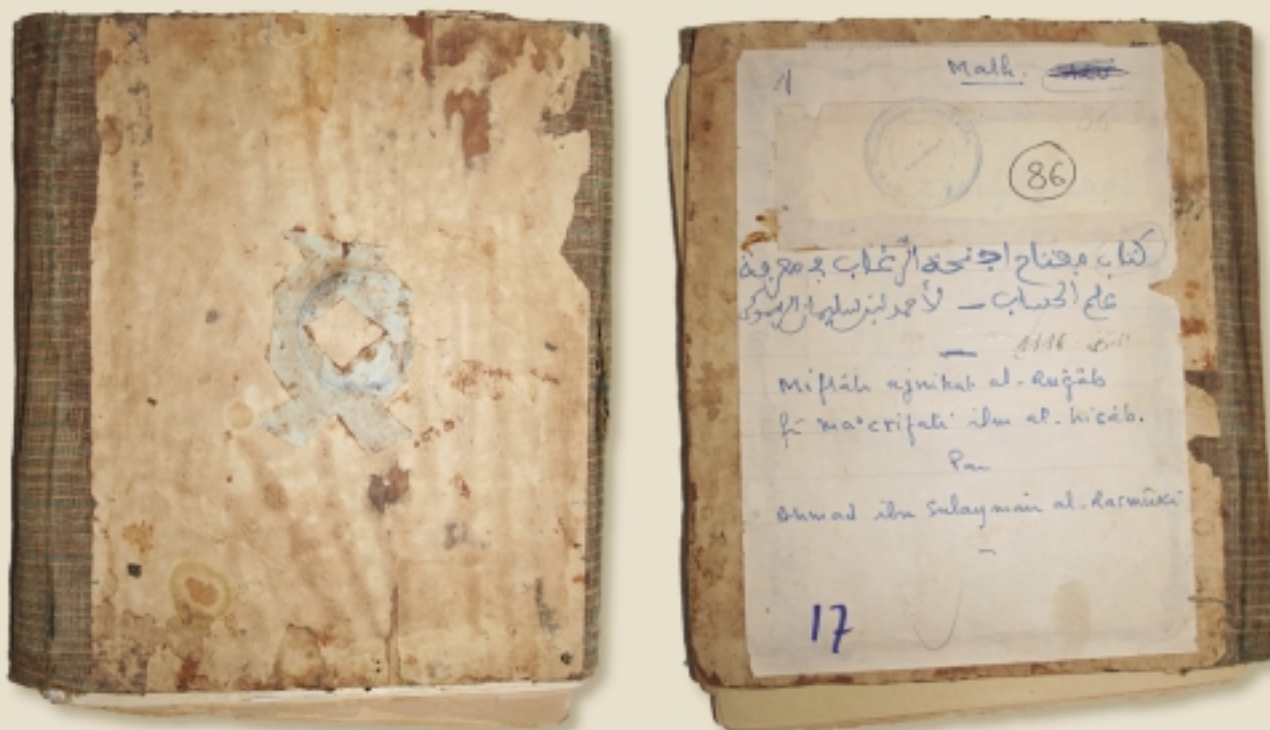 1
Math.
86
كتاب مفتاح اجنحة الرغاب في معرفة
علم الحساب – لأحمد بن سليمان الرسموكي
1116
Miftāh ajnihat al-Ruġāb
fī maᶜrifati ilm al-hicāb.
Par
Ahmad ibn Sulaymān al-Rasmūkī
17